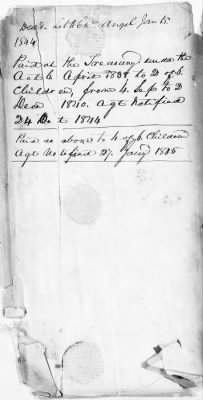 Dead Angel Jan 15
1844
Paid at the Treasury under the
Act 6 April 1838 to 2 of 6
Children, from 4. Sep to 2
Decr 1840. Agt Notified
24 Oct 1844
Paid as above to 4 of 6 Children
Agt Notified 27 Jany 1845